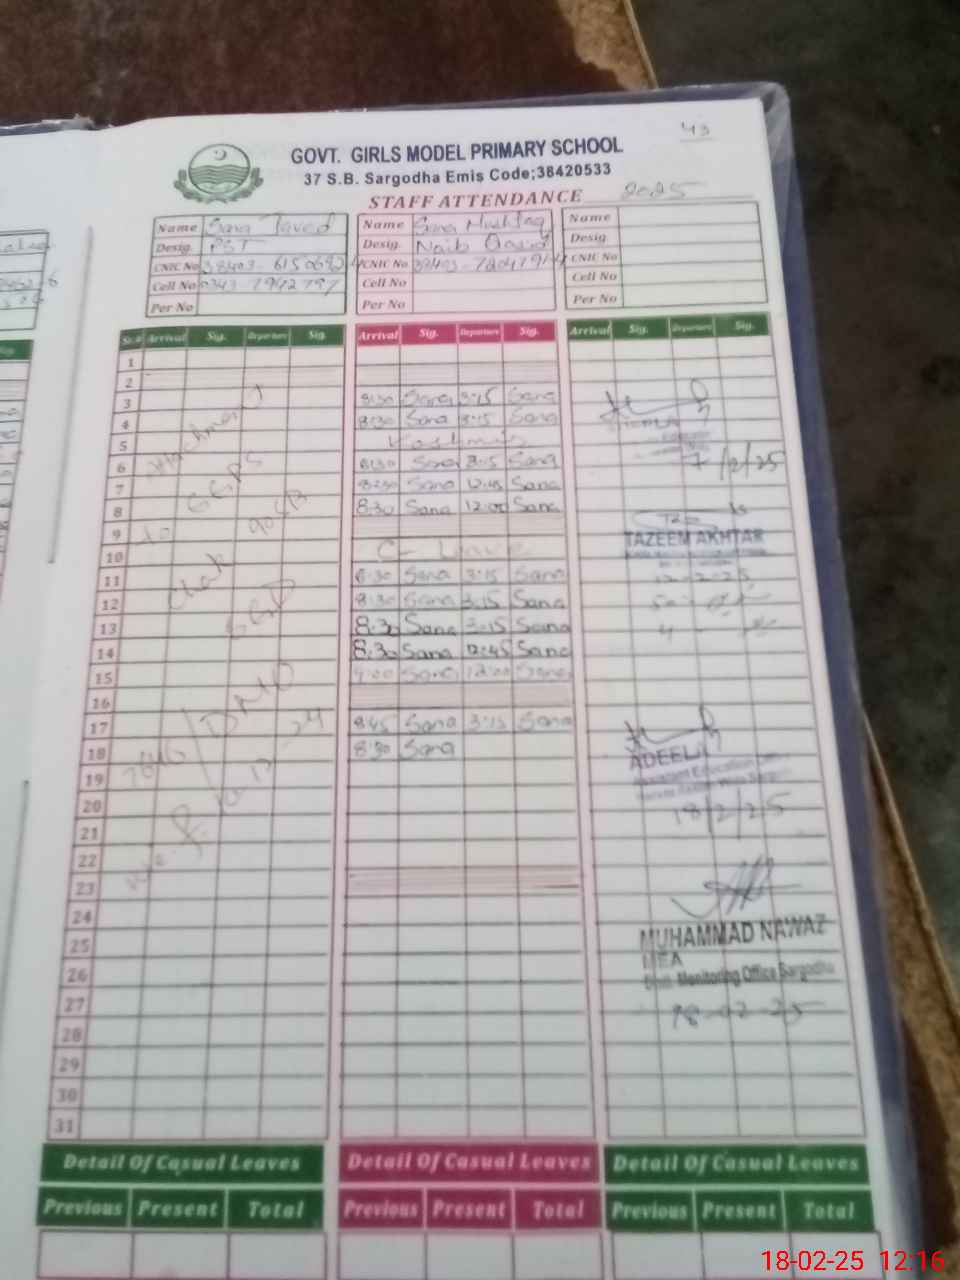 43
GOVT. GIRLS MODEL PRIMARY SCHOOL
37 S.B. Sargodha Emis Code;38420533
STAFF ATTENDANCE 2025
Name Sana Javed Name Sana Mushtaq Name
Desig. PST Desig. Naib Qasid Desig
CNIC No CNIC No CNIC No
Cell No Cell No Cell No
Per No Per No Per No
Sr.# Arrival Sig. Departure Sig. Arrival Sig. Departure Sig. Arrival Sig. Departure Sig.
1
2
3 8:30 Sana 3:15 Sana
4 8:30 Sana 3:15 Sana
5 Kashmir
6 8:30 Sana 3:15 Sana
7 8:30 Sana 12:45 Sana
8 8:30 Sana 12:00 Sana
9
10 C- Leave
11 8:30 Sana 3:15 Sana
12 8:30 Sana 3:15 Sana
13 8:30 Sana 3:15 Sana
14 8:30 Sana 12:45 Sana
15 9:00 Sana 12:00 Sana
16
17 8:45 Sana 3:15 Sana
18 8:30 Sana
19
20
21
22
23
24
25
26
27
28
29
30
31
Attachment
to GGPS
Chak 90 SB
SGD
DMO
7/2/25
TAZEEM AKHTAR
12-2-25
ADEELA
18/2/25
MUHAMMAD NAWAZ
MEA
Distt. Monitoring Office Sargodha
18-02-25
Detail Of Casual Leaves Detail Of Casual Leaves Detail Of Casual Leaves
Previous Present Total Previous Present Total Previous Present Total
18-02-25 12:16